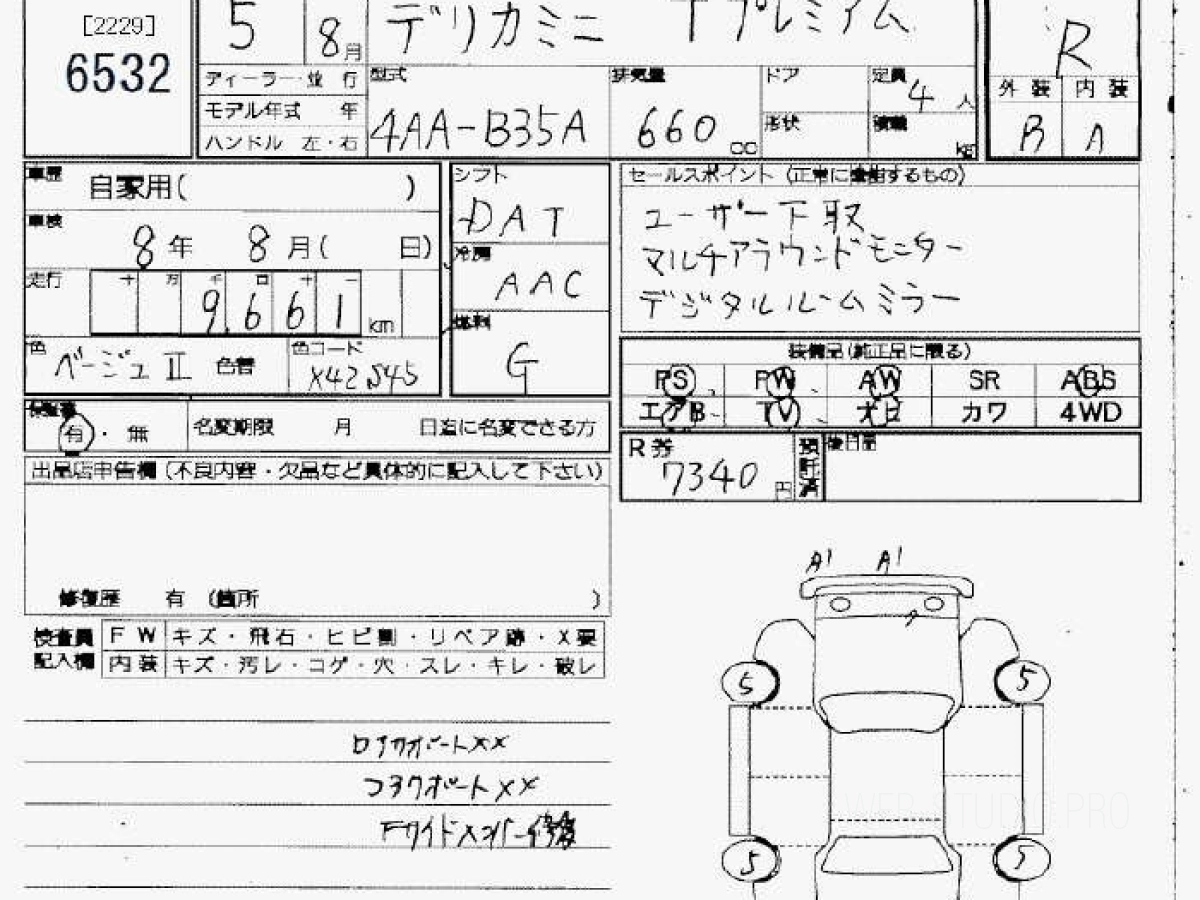 [2229]
6532
5 8月
デリカミニ Tプレミアム
R
ディーラー・並行
モデル年式 年
ハンドル 左・右
型式
4AA-B35A
排気量
660 cc
ドア
定員 4 人
形状
積載 kg
外装 内装
B A
車歴 自家用( )
車検
8年 8月( 日)
走行 十 万 千 百 十 一
9,661 km
色 ベージュII 色替
色コード
X42 S45
シフト
DAT
冷房
AAC
燃料
G
セールスポイント (正常に作動するもの)
ユーザー下取
マルチアラウンドモニター
デジタルルームミラー
装備品(純正品に限る)
PS PW AW SR ABS
エアB TV ナビ カワ 4WD
保証書
有・無
名変期限 月 日迄に名変できる方
R券
7340 円
預託済
後日品
出品店申告欄(不良内容・欠品など具体的に記入して下さい)
修復歴 有 (箇所 )
検査員記入欄
FW キズ・飛石・ヒビ割・リペア跡・X要
内装 キズ・汚レ・コゲ・穴・スレ・キレ・破レ
A1 A1
5 5
XX
XX
5 5
WEB STUDIO PRO